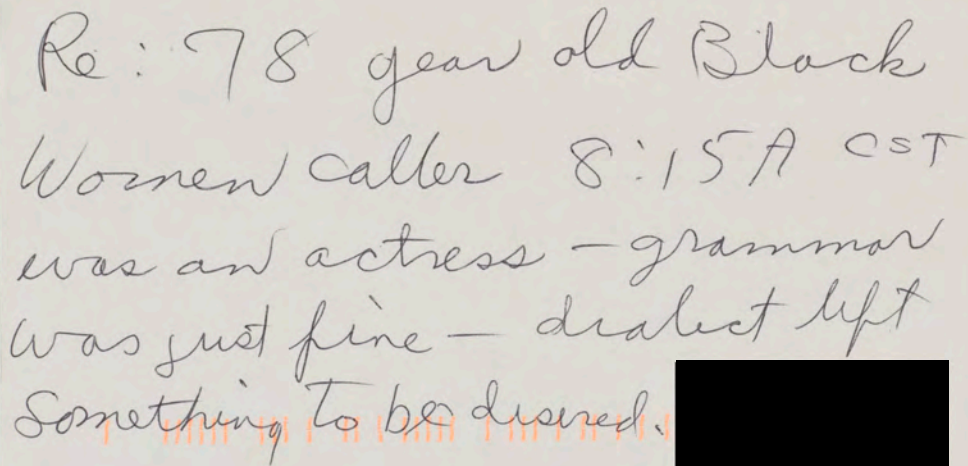 Re: 78 year old Black
Women caller 8:15A CST
was an actress - grammar
was just fine - dialect left
something to be disered.